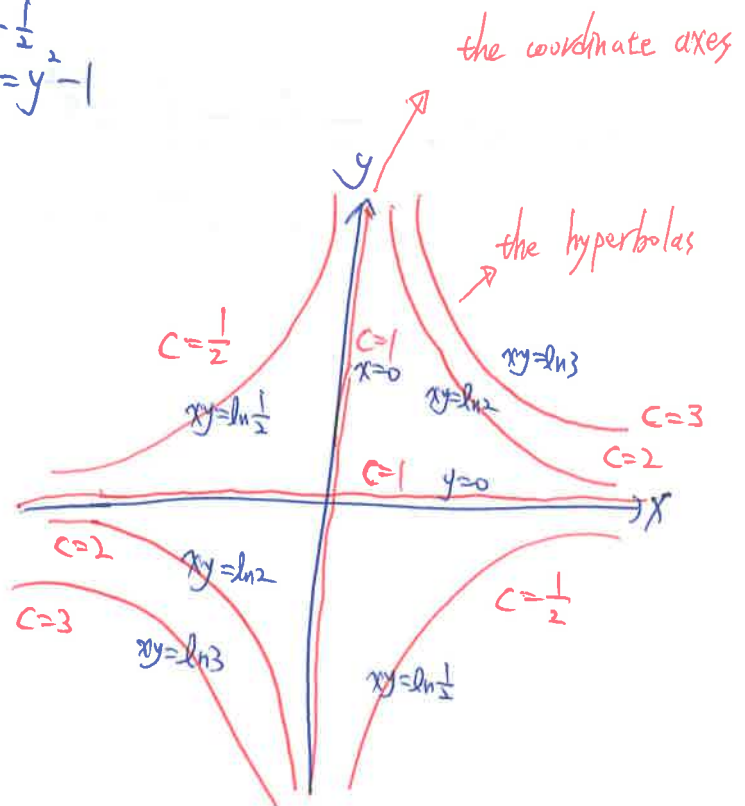 -1/2
= y² - 1
the coordinate axes
y
the hyperbolas
C=1/2
C=1
x=0
xy=ln3
xy=ln1/2
xy=ln2
C=3
C=2
C=1
y=0
x
C=2
xy=ln2
C=1/2
C=3
xy=ln3
xy=ln1/2